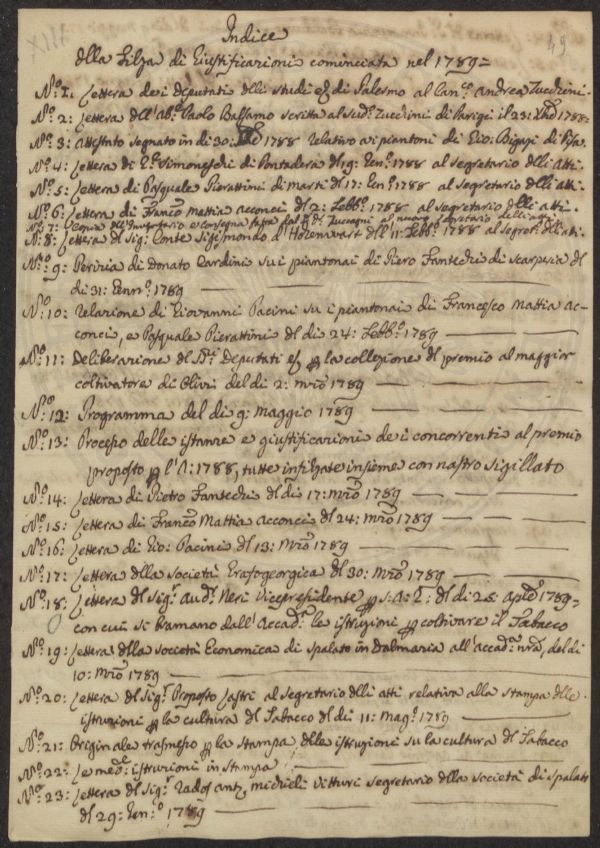 Indice
49
della Filza di Giustificazioni cominciata nel 1789=
N.º 1: Lettera dei Deputati delli studi di Palermo al Can.º Andrea Zucchini.
N.º 2: Lettera dell'Ab.e Paolo Balsamo scritta al Sud.º Zucchini di Parigi il 23: Xbre 1788=
N.º 3: Attestato segnato in di 30: 1788 relativo ai piantoni di Gio: Bigazi di Pisa.
N.º 4: Lettera di Simoneschi di Pontadera del 9: Gen.º 1788 al segretario delli Atti.
N.º 5: Lettera di Pasquale Pierattini di Marti del 17: Gen.º 1788 al segretario delli Atti.
N.º 6: Lettera di Franc.º Mattia Acconci del 2: Febb.º 1788 al segretario delli Atti.
N.º 7: Copia dell'Inventario e consegna fatta dal Zucagni al nuovo segretario delli atti
N.º 8: Lettera del Sig: Conte Sigismondo d'Hozenwart dell'11: Febb.º 1788 al segret.º delli Atti.
N.º 9: Perizia di Donato Cardini su i piantonai di Piero Fantechi di Scarperia del
di 31: Genn.º 1789
N.º 10: Relazione di Giovanni Pacini su i piantonai di Francesco Mattia Ac-
conci, e Pasquale Pierattini del di 24: Febb.º 1789
N.º 11: Deliberazione de' SS.ri Deputati p la collezione del premio al maggior
coltivatore di Olivi del di 2: Mrzo 1789
N.º 12: Programma del di 9: Maggio 1789
N.º 13: Processo delle istanze e giustificazioni de i concorrenti al premio
proposto p l'A: 1788, tutte infilzate insieme con nastro sigillato
N.º 14: Lettera di Pietro Fantechi del di 17: Mrzo 1789
N.º 15: Lettera di Franc.º Mattia Acconci del 24: Mrzo 1789
N.º 16: Lettera di Gio: Pacini del 13: Mrzo 1789
N.º 17: Lettera della Società Erafogeorgica del 30: Mrzo 1789
N.º 18: Lettera del Sig.r Aud.r Neri Vicepresidente p S: A: R: del di 28 Aple 1789=
con cui si bramano dall'Accad.a le istruzioni p coltivare il Tabacco
N.º 19: Lettera della Società Economica di Spalato in Dalmazia all'Accad.a nra, del di
10: Mrzo 1789
N.º 20: Lettera del Sig.r Proposto Lastri al Segretario delli Atti relativa alla stampa delle
istruzioni p la cultura del Tabacco del di 11: Mag.º 1789
N.º 21: Originale trasmesso p la stampa delle istruzioni su la cultura del Tabacco
N.º 22: Le med.e istruzioni in stampa
N.º 23: Lettera del Sig.r Rados Ant.º Michieli Vitturi segretario della Società di Spalato
del 29: Gen.º 1789